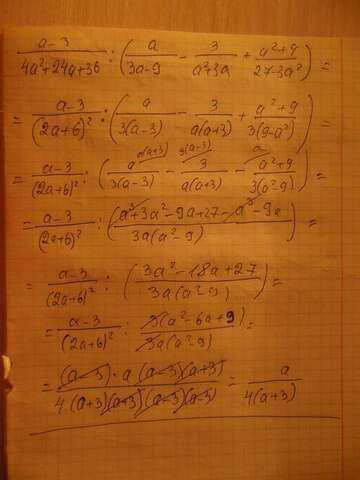 (a-3)/(4a²+24a+36) : (a/(3a-9) - 3/(a²+3a) + (a²+9)/(27-3a²)) =
= (a-3)/(2a+6)² : (a/3(a-3) - 3/a(a+3) + (a²+9)/3(9-a²)) =
= (a-3)/(2a+6)² : (a^{a(a+3)}/3(a-3) - ^{3(a-3)}3/a(a+3) - ^{a}(a²+9)/3(a²-9)) =
= (a-3)/(2a+6)² : ((a³+3a²-9a+27-a³-9a)/3a(a²-9)) =
= (a-3)/(2a+6)² : ((3a²-18a+27)/3a(a²-9)) =
= (a-3)/(2a+6)² : 3(a²-6a+9)/3a(a²-9) =
= (a-3)·a(a-3)(a+3)/4(a+3)(a+3)(a-3)(a-3) = a/4(a+3)